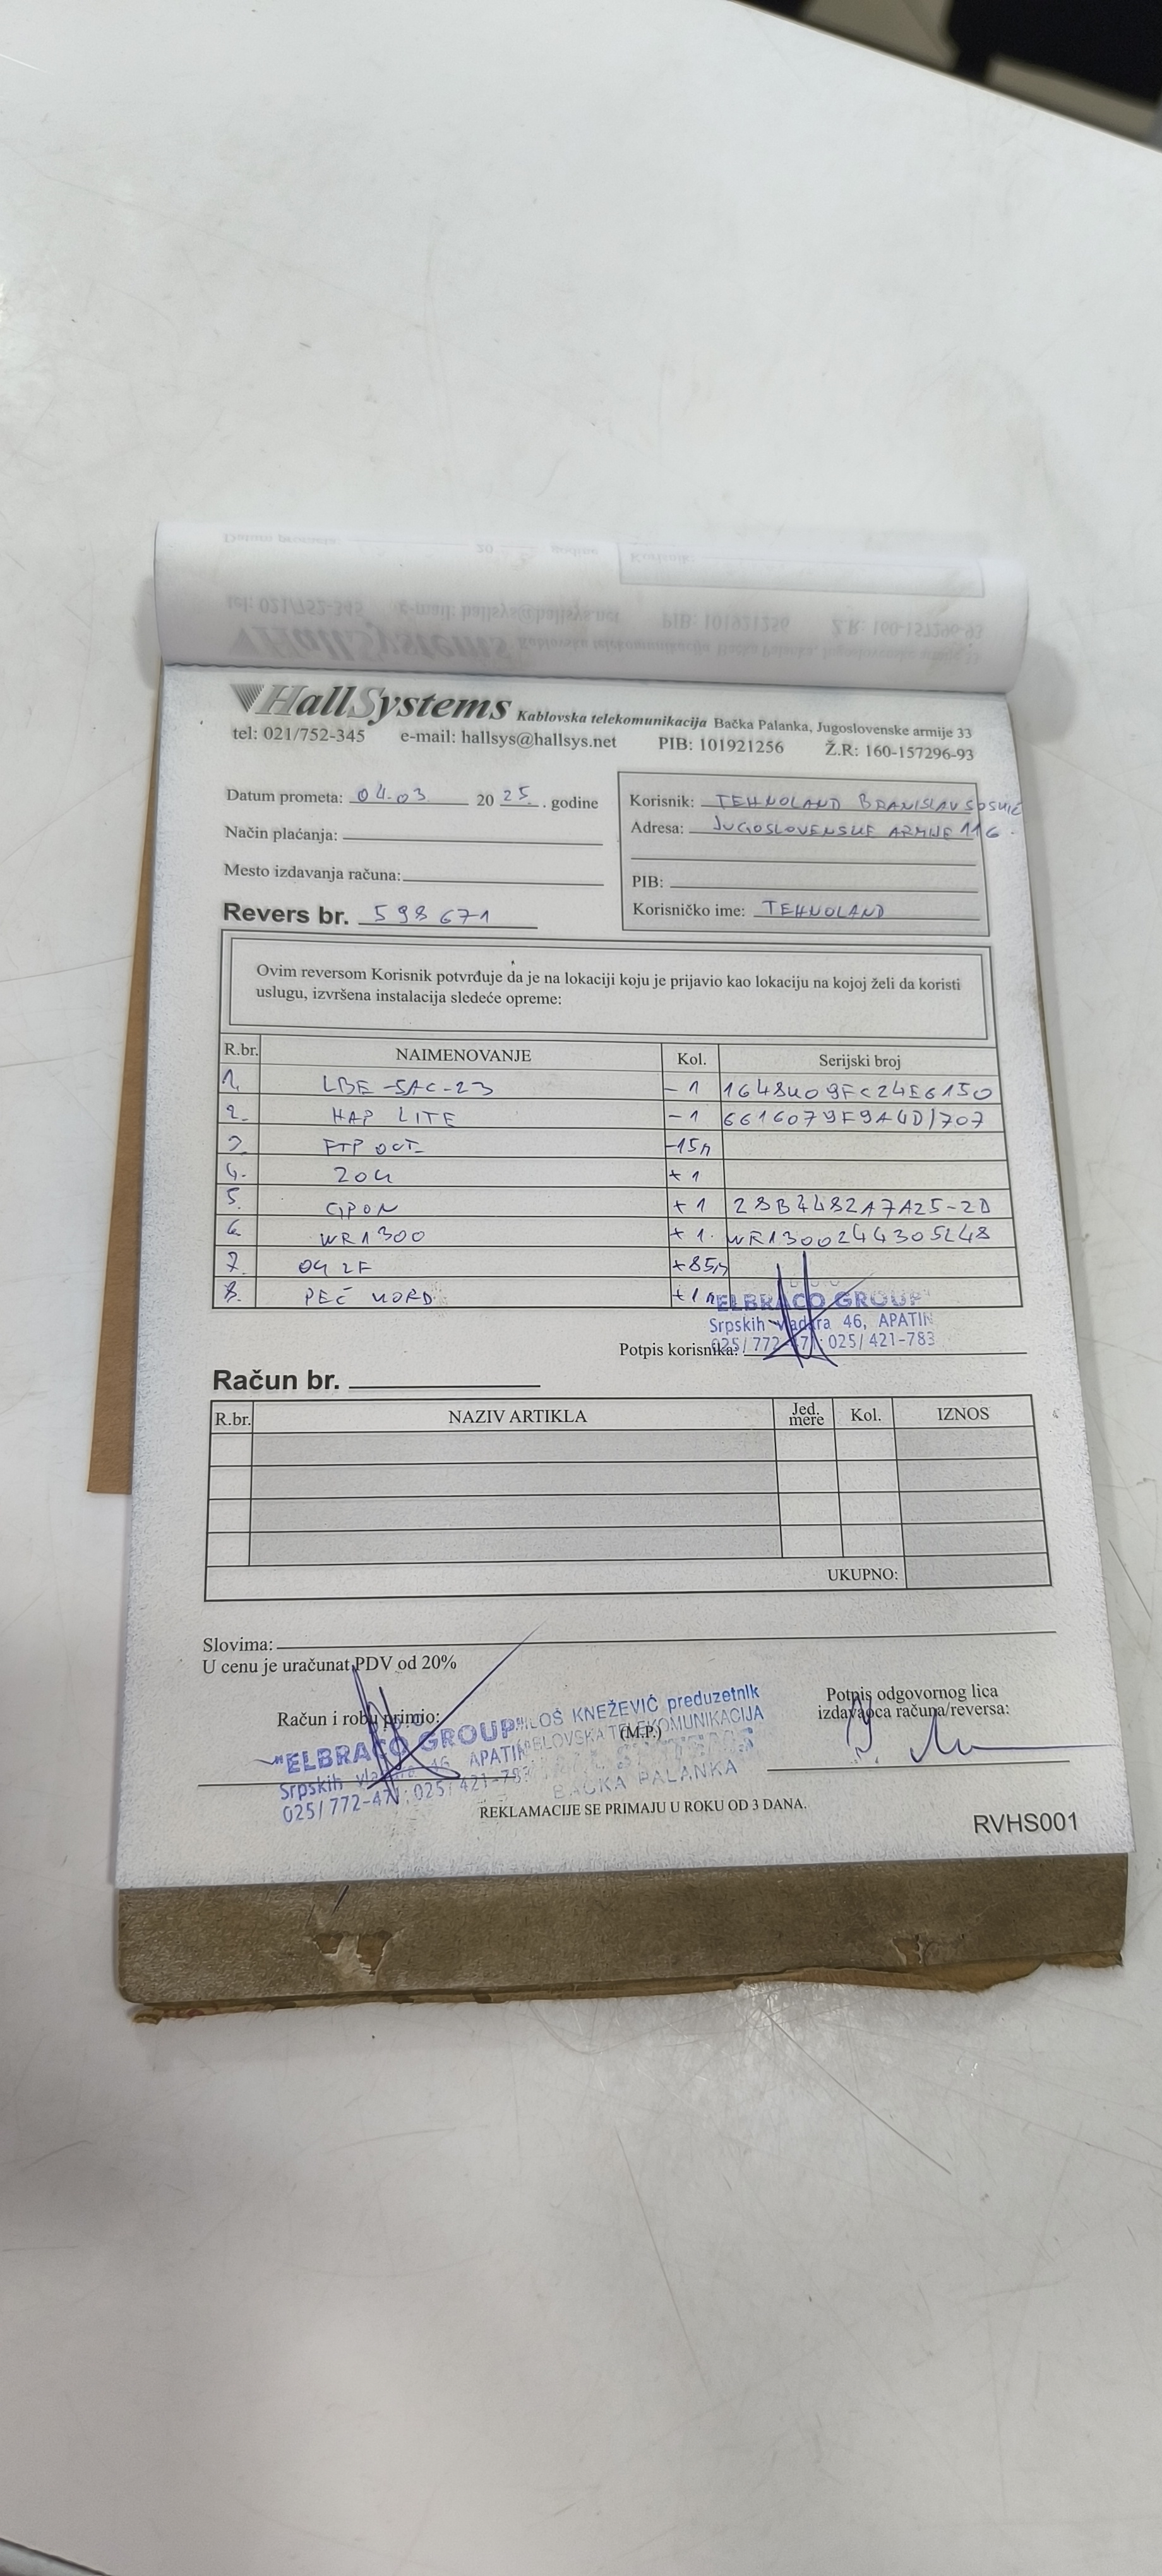 HallSystems Kablovska telekomunikacija Bačka Palanka, Jugoslovenske armije 33
tel: 021/752-345 e-mail: hallsys@hallsys.net PIB: 101921256 Ž.R: 160-157296-93
Datum prometa: 04.03 20 25 . godine
Način plaćanja:
Mesto izdavanja računa:
Revers br. 598671
Korisnik: TEHNOLAND BRANISLAV
Adresa: JUGOSLOVENSKE ARMIJE 116
PIB:
Korisničko ime: TEHNOLAND
Ovim reversom Korisnik potvrđuje da je na lokaciji koju je prijavio kao lokaciju na kojoj želi da koristi
uslugu, izvršena instalacija sledeće opreme:
R.br. NAIMENOVANJE Kol. Serijski broj
1. LBE-5AC-23 -1
2. HAP LITE -1 6616079F9A4D/707
3. FTP OUT -15m
4. ZOK +1
5. GPON +1 28B4482A7A25-2D
6. WR1300 +1. WR1300244305248
7. OK 2F +85m
8. +1
"ELBRACO GROUP"
Srpskih vladara 46, APATIN
025/772-471; 025/421-783
Potpis korisnika:
Račun br.
R.br. NAZIV ARTIKLA Jed. mere Kol. IZNOS
UKUPNO:
Slovima:
U cenu je uračunat PDV od 20%
Račun i robu primio:
"ELBRACO GROUP"
Srpskih vladara 46, APATIN
025/772-471; 025/421-783
MILOŠ KNEŽEVIĆ preduzetnik
KABLOVSKA TELEKOMUNIKACIJA
(M.P.)
BAČKA PALANKA
Potpis odgovornog lica
izdavaoca računa/reversa:
REKLAMACIJE SE PRIMAJU U ROKU OD 3 DANA.
RVHS001